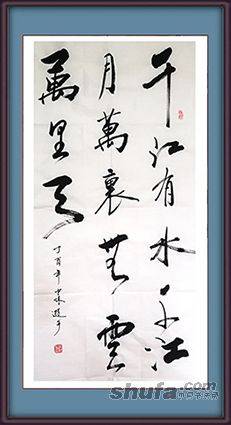 千江有水千江
月萬裏無雲
萬里天
丁酉年
shufa.com